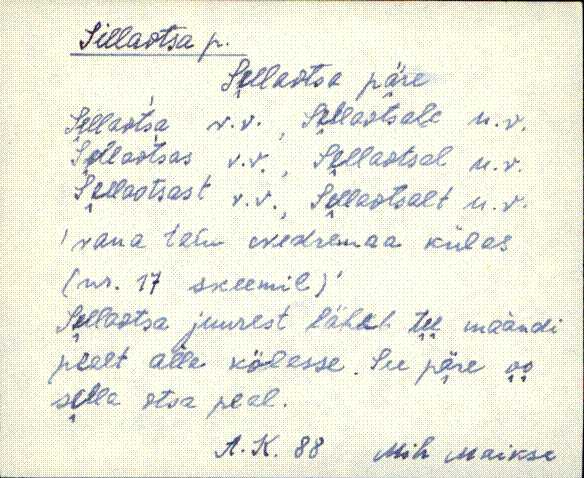 Sillaotsa p.
Se̬llaotsa pä̬re
Se̬llaotsa v.v., Se̬llaotsale u.v.
Se̬llaotsas v.v., Se̬llaotsal u.v.
Se̬llaotsast v.v., Se̬llaotsalt u.v.
'vana talu Nedremaa külas
(nr. 17 skeemil)'
Se̬llaotsa juurest läheb te̬e̬ määndi
pealt alla kölasse. See pä̬re o̬o̬
se̬lla otsa peal.
A.K. 88 Mih Maikse